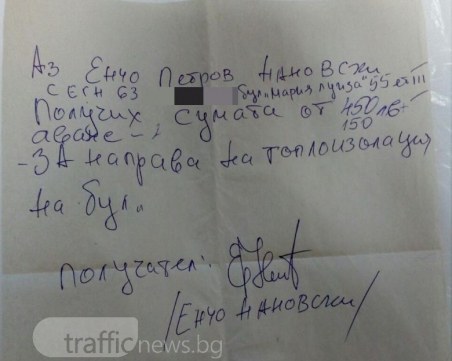 Аз Енчо Петров Нановски
С ЕГН 63 бул. "Мария Луиза" 55 ет III
Получих сумата от 450 лв
аванс - 150
- За направа на топлоизолация
на бул.
Получател:
/Енчо Нановски/
trafficnews.bg